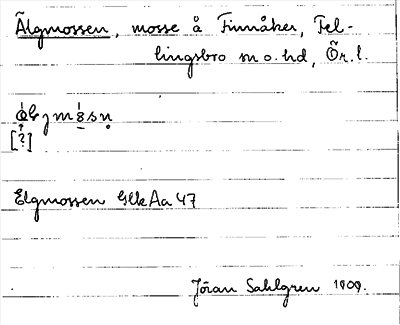 Älgmossen, mosse å Finnåker, Fel-
lingsbro sn o. hd, Ör. l.
[?]
Elgmossen GlkAa 47
Jöran Sahlgren 1909.